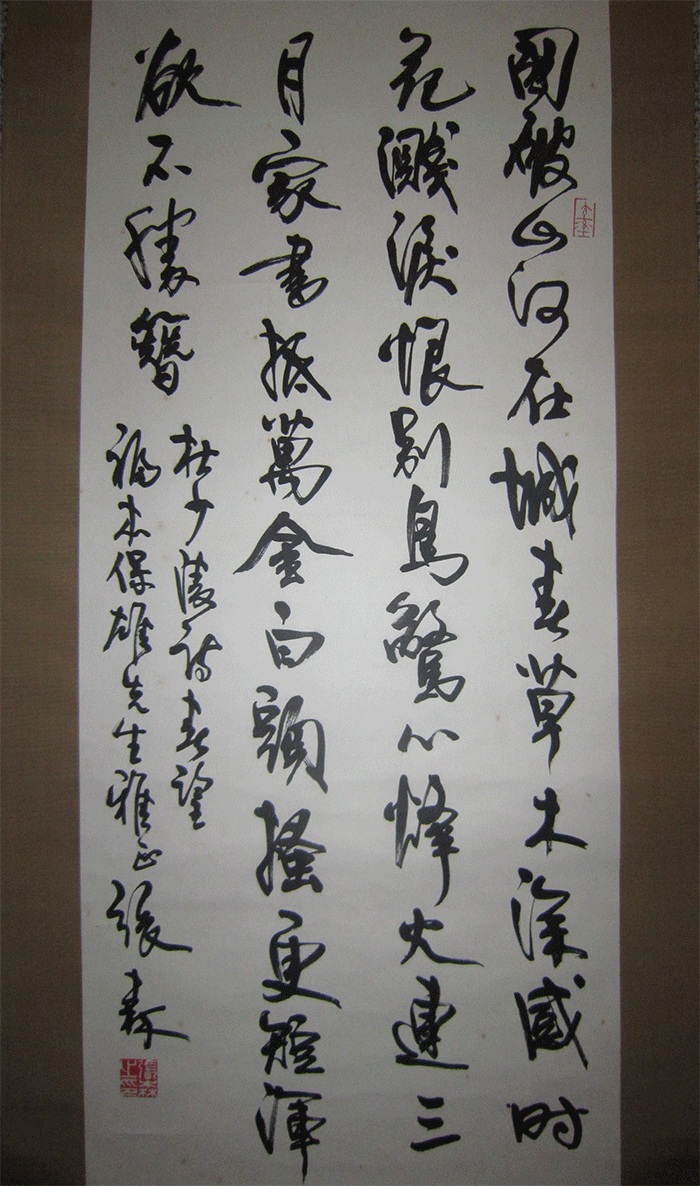 國破山河在城春草木深感时
花濺淚恨别鳥驚心烽火連三
月家書抵萬金白頭搔更短渾
欲不勝簪
杜少陵詩春望
福本保雄先生雅正 張森
張森之印